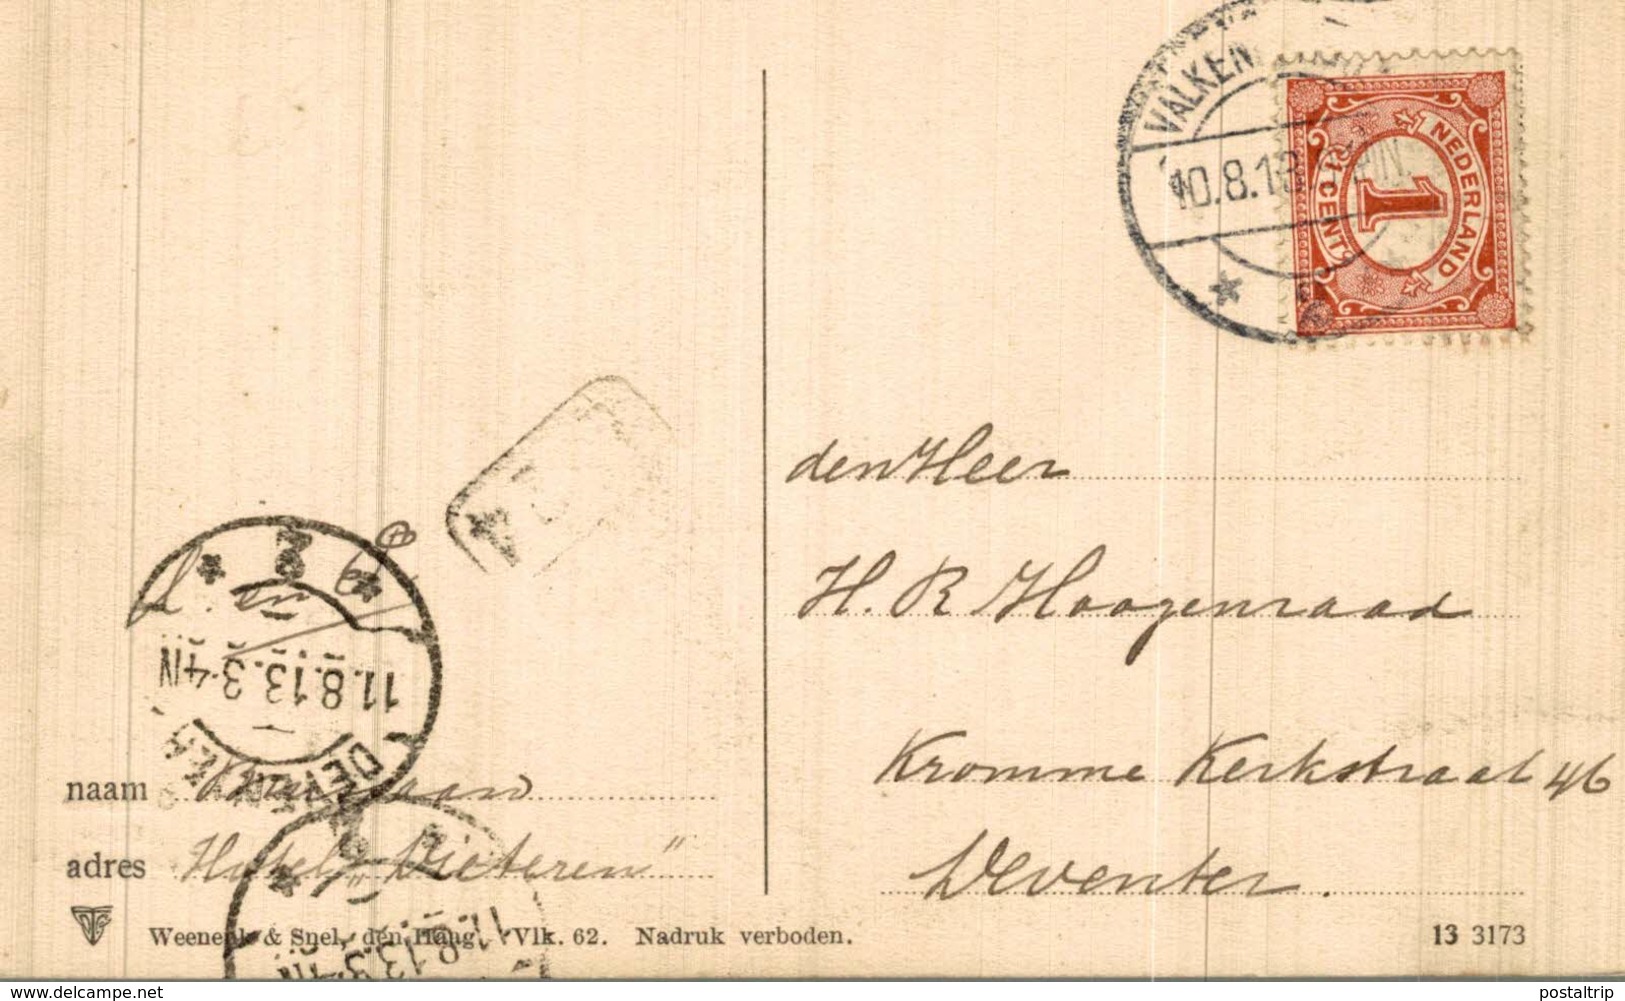 VALKEN
10.8.13
NEDERLAND
1
1 CENT
den Heer
H. R Hoogenraad
Kromme Kerkstraat 46
Deventer.
2
11.8.13.3-4N
DEVENTER
naam
adres Hotel „Dieteren"
11.8.13.3
Weenenk & Snel, den Haag. Vlk. 62. Nadruk verboden.
13 3173
www.delcampe.net
postaltrip